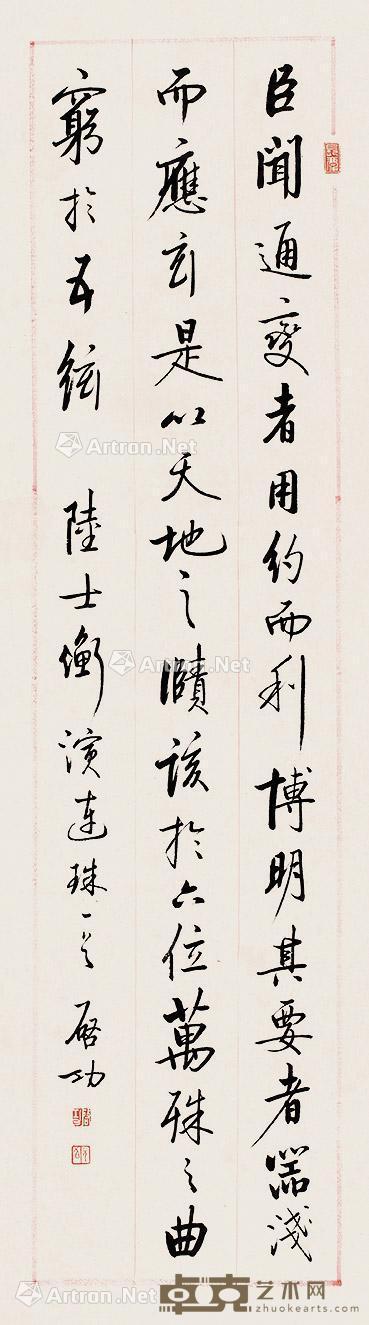 臣聞通變者用約而利博明其要者器淺
而應玄是以天地之賾該於六位萬殊之曲
窮於五絃 陸士衡演連珠一首 啓功
Artron.Net
Artron.Net
Artron.Net
Artron.Net
Artron.Net
Artron.Net
卓克艺术网
zhuokearts.com